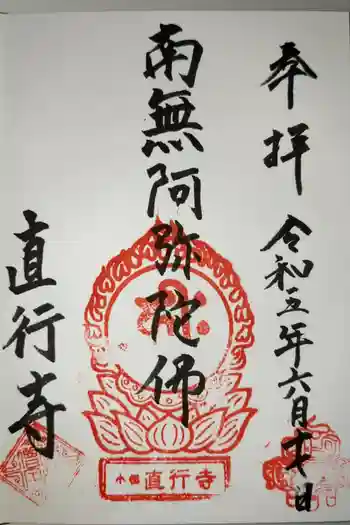 奉拝
令和五年六月十八日
南無阿弥陀佛
直行寺
直行寺